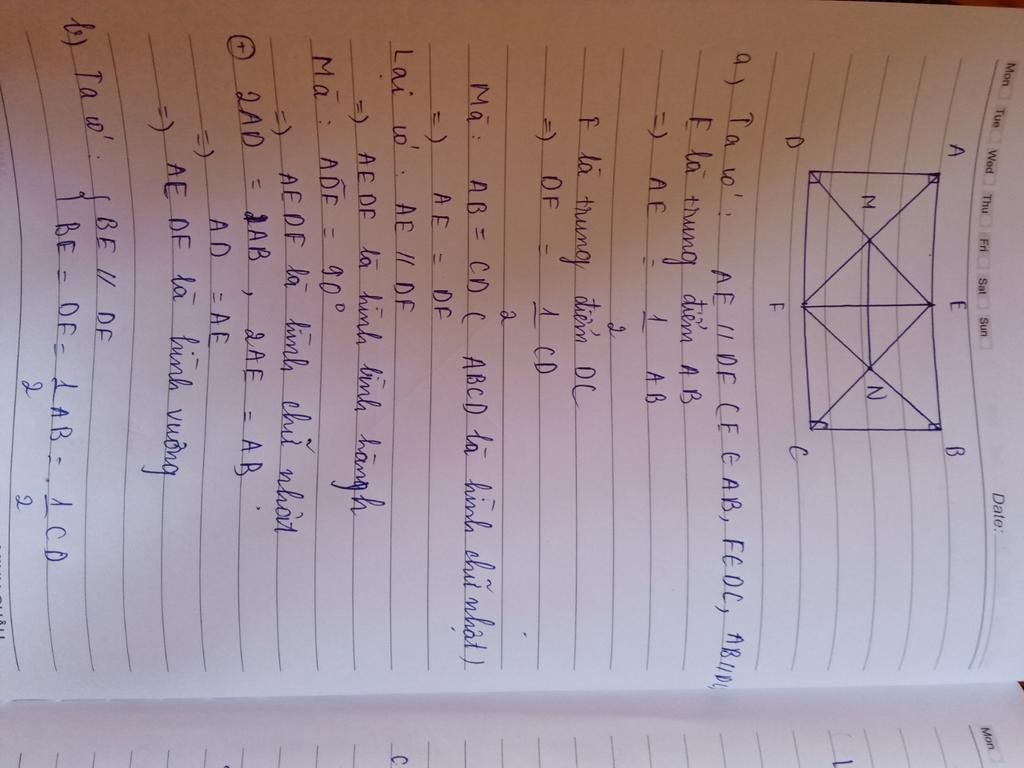 Mon Tue Wed Thu Fri Sat Sun
Date:
A E B
M N
D F C
a) Ta có: AE // DF ( E ∈ AB, F ∈ DC, AB // DC
E là trung điểm AB
=) AE = 1/2 AB
F là trung điểm DC
=) DF = 1/2 CD
Mà: AB = CD ( ABCD là hình chữ nhật)
=) AE = DF
Lại có: AE // DF
=) AEDF là hình bình hàngh
Mà: ADF = 90°
=) AEDF là hình chữ nhật
+ 2AD = 2AB, 2AE = AB
=) AD = AE
=) AEDF là hình vuông
b) Ta có: { BE // DF
{ BE = DF = 1/2 AB = 1/2 CD
Mon